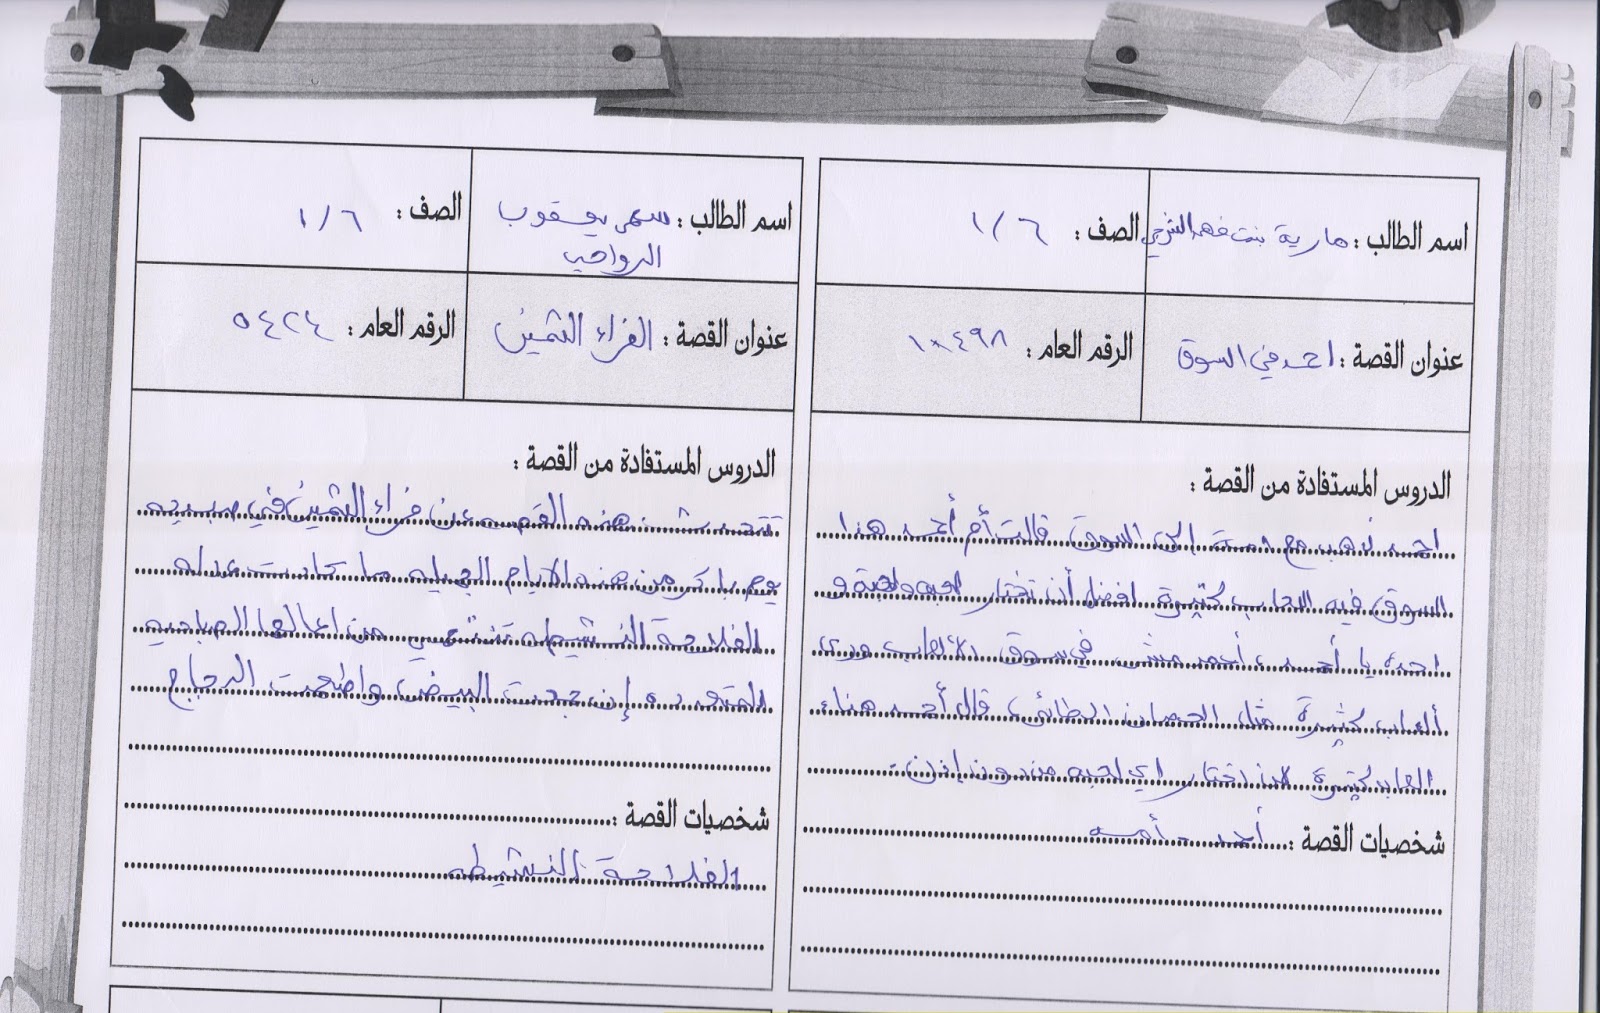 اسم الطالب : مارية بنت فهد الشرجي
الصف : ٦ / ١
عنوان القصة : احمد في السوق
الرقم العام : ١٠٤٩٨
الدروس المستفادة من القصة :
احمد ذهب مع امه إلى السوق قالت أم أحمد هذا
السوق فيه العاب كثيرة افضل أن تختار لعبه واحدة و
احدة يا أحمد ، أحمد مشى في سوق الألعاب ورى
ألعاب كثيرة مثل الحصان الطائر، قال أحمد هناء
العاب كثيرة لان اختار اي لعبه من دون إذن.
شخصيات القصة : أحمد - أمه
اسم الطالب : سمر يعقوب
الرواحي
الصف : ٦ / ١
عنوان القصة : الفراء الثمين
الرقم العام : ٥٤٢٤
الدروس المستفادة من القصة :
تتحدث هذه القصه عن فراء الثمين في صبيحه
يوم باكر من هذه الايام الجميله ما كادت عدله
الفلاحة النشيطه تنتهي من اعمالها الصباحيه
المتعدده إن جمعت البيض واطعمت الدجاج
شخصيات القصة :
الفلاحة النشيطه